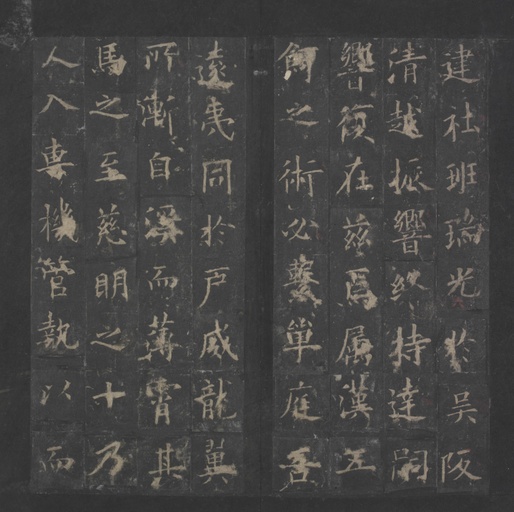 建社班瑞光於吳阪
清越振響終特達嗣
響復在茲自属漢五
餌之術必單庭
遠夷同於戶威龍翼
所漸自深而薄霄其
馬之至慈明之十乃
人入專機管執以而